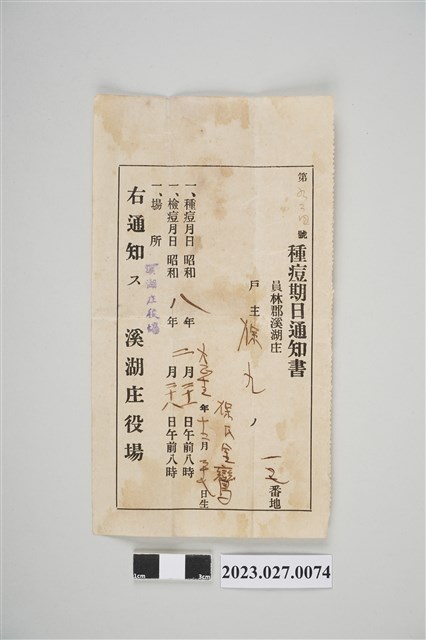 第 號
種痘期日通知書
員林郡溪湖庄
番地
戶主 徐九ノ
徐氏金鶯
年十二月 日生
一、種痘月日 昭和八年二月 日午前八時
一、檢痘月日 昭和八年二月 日午前八時
一、場所 溪湖庄役場
右通知ス 溪湖庄役場
1cm
3cm
2023.027.0074